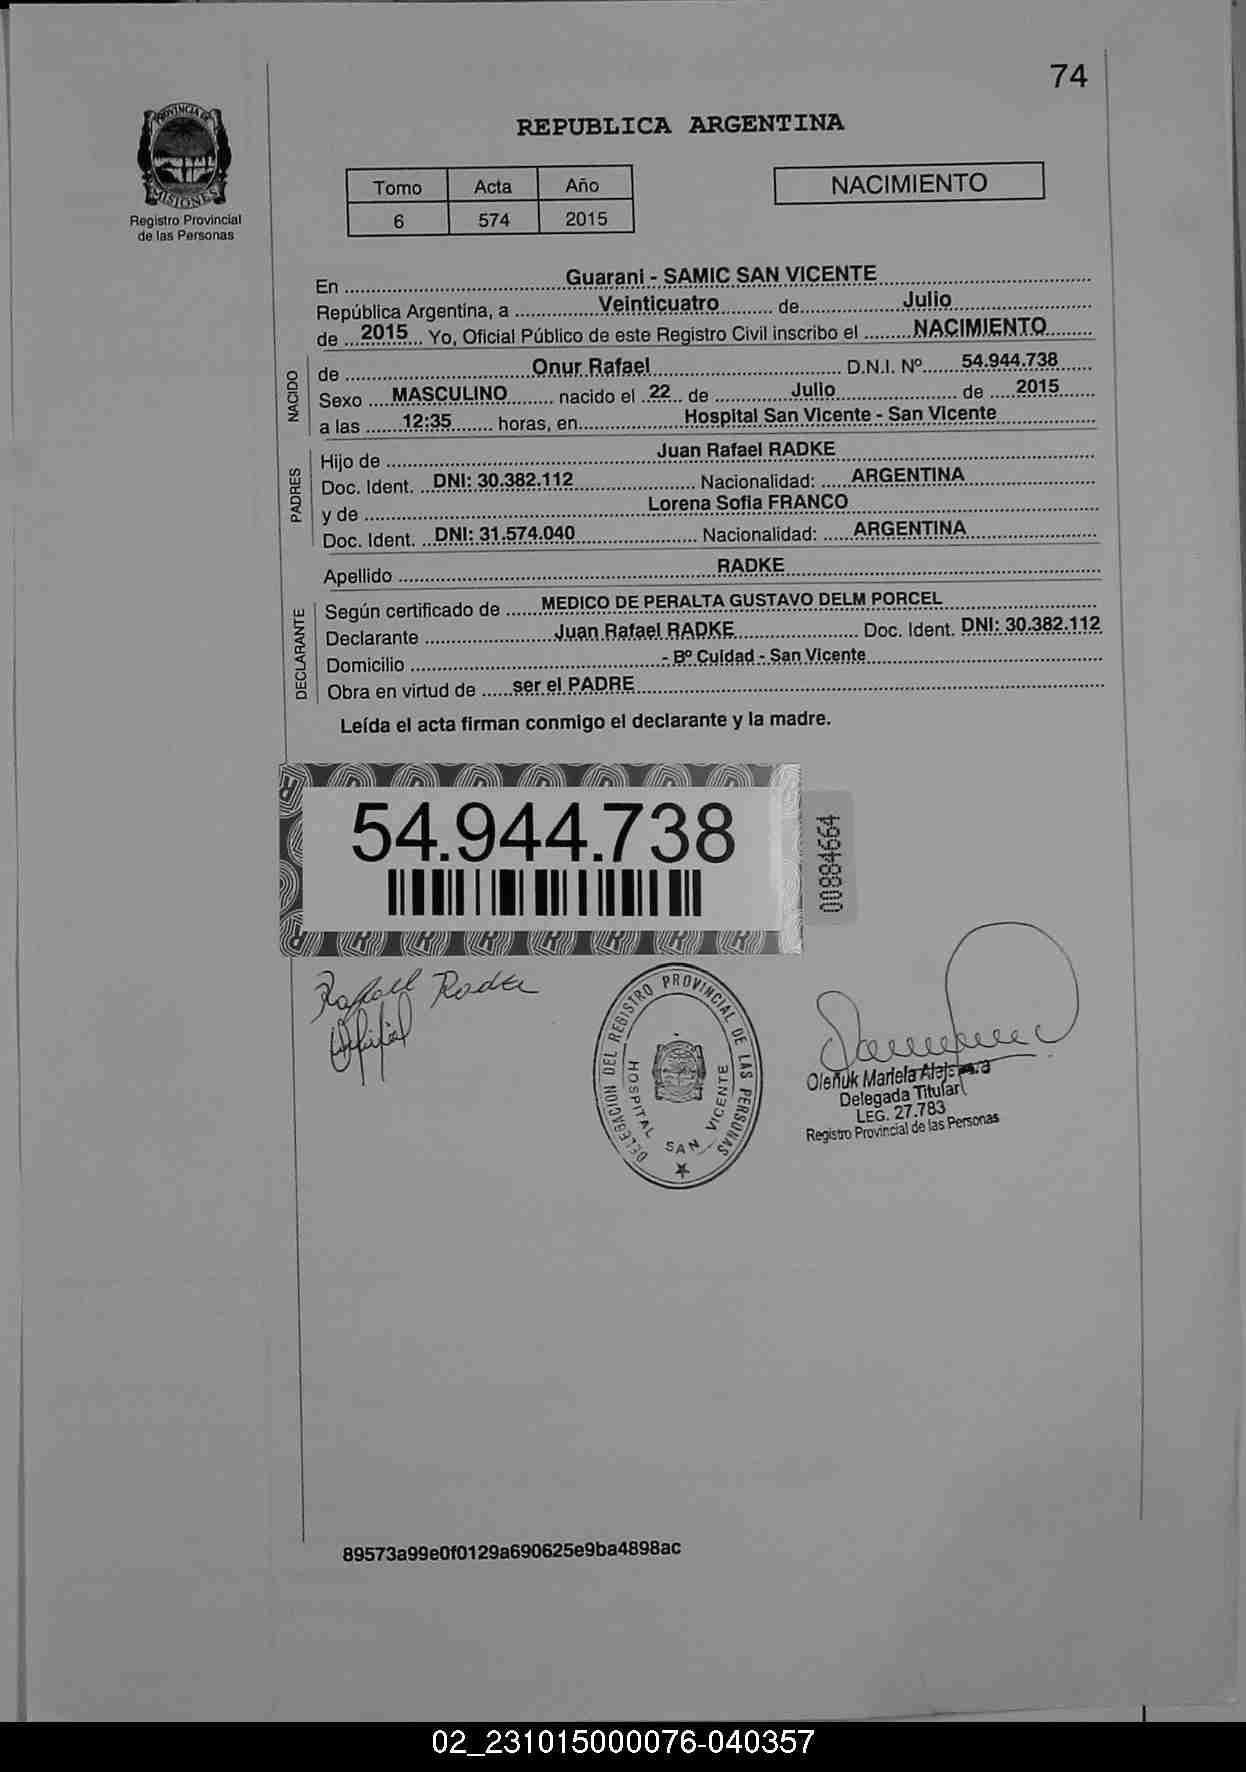 74
PROVINCIA DE
MISIONES
Registro Provincial
de las Personas
REPUBLICA ARGENTINA
Tomo Acta Año
6 574 2015
NACIMIENTO
En Guarani - SAMIC SAN VICENTE
República Argentina, a Veinticuatro de Julio
de 2015 Yo, Oficial Público de este Registro Civil inscribo el NACIMIENTO
NACIDO
de Onur Rafael D.N.I. Nº 54.944.738
Sexo MASCULINO nacido el 22 de Julio de 2015
a las 12:35 horas, en Hospital San Vicente - San Vicente
PADRES
Hijo de Juan Rafael RADKE
Doc. Ident. DNI: 30.382.112 Nacionalidad: ARGENTINA
y de Lorena Sofia FRANCO
Doc. Ident. DNI: 31.574.040 Nacionalidad: ARGENTINA
Apellido RADKE
DECLARANTE
Según certificado de MEDICO DE PERALTA GUSTAVO DELM PORCEL
Declarante Juan Rafael RADKE Doc. Ident. DNI: 30.382.112
Domicilio - Bº Cuidad - San Vicente
Obra en virtud de ser el PADRE
Leída el acta firman conmigo el declarante y la madre.
54.944.738
00884664
Rafael Radke
DELEGACION DEL REGISTRO PROVINCIAL DE LAS PERSONAS
HOSPITAL SAN VICENTE
Oleñuk Mariela
Delegada Titular
LEG. 27.783
Registro Provincial de las Personas
89573a99e0f0129a690625e9ba4898ac
02_231015000076-040357